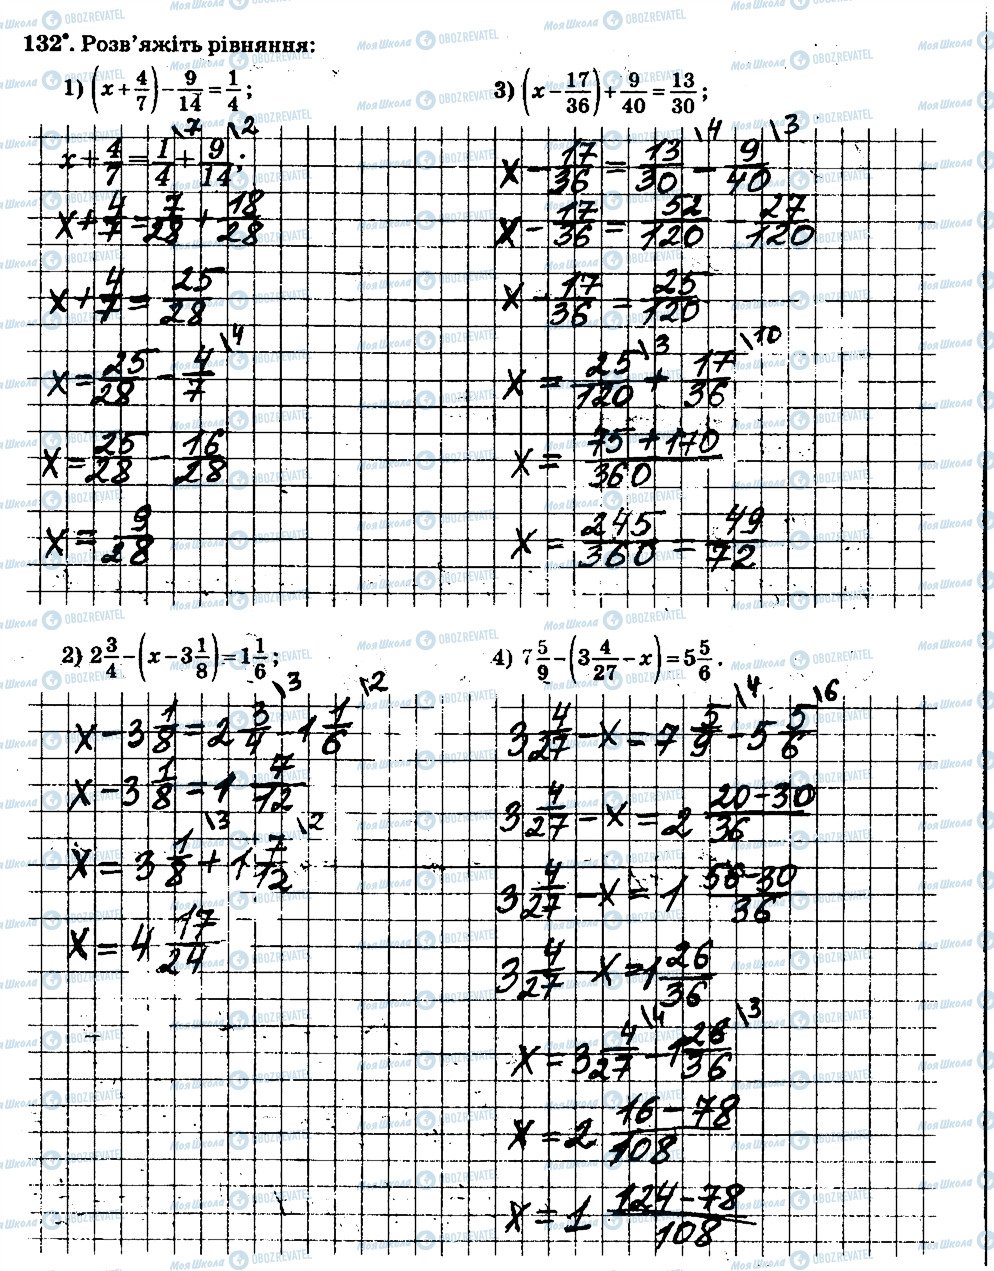 132°. Розв'яжіть рівняння:
1) (x + 4/7) − 9/14 = 1/4;
x + 4/7 = 1/4 \7 + 9/14 \2;
x + 4/7 = 7/28 + 18/28
x + 4/7 = 25/28
x = 25/28 − 4/7 \4
x = 25/28 − 16/28
x = 9/28
3) (x − 17/36) + 9/40 = 13/30;
x − 17/36 = 13/30 \4 − 9/40 \3
x − 17/36 = 52/120 − 27/120
x − 17/36 = 25/120
x = 25/120 \3 + 17/36 \10
x = (75 + 170)/360
x = 245/360 = 49/72
2) 2 3/4 − (x − 3 1/8) = 1 1/6;
x − 3 1/8 = 2 3/4 \3 − 1 1/6 \2
x − 3 1/8 = 1 7/12
x = 3 1/8 \3 + 1 7/12 \2
x = 4 17/24
4) 7 5/9 − (3 4/27 − x) = 5 5/6.
3 4/27 − x = 7 5/9 \4 − 5 5/6 \6
3 4/27 − x = 2 (20 − 30)/36
3 4/27 − x = 1 (56 − 30)/36
3 4/27 − x = 1 26/36
x = 3 4/27 \4 − 1 26/36 \3
x = 2 (16 − 78)/108
x = 1 (124 − 78)/108
Моя Школа OBOZREVATEL